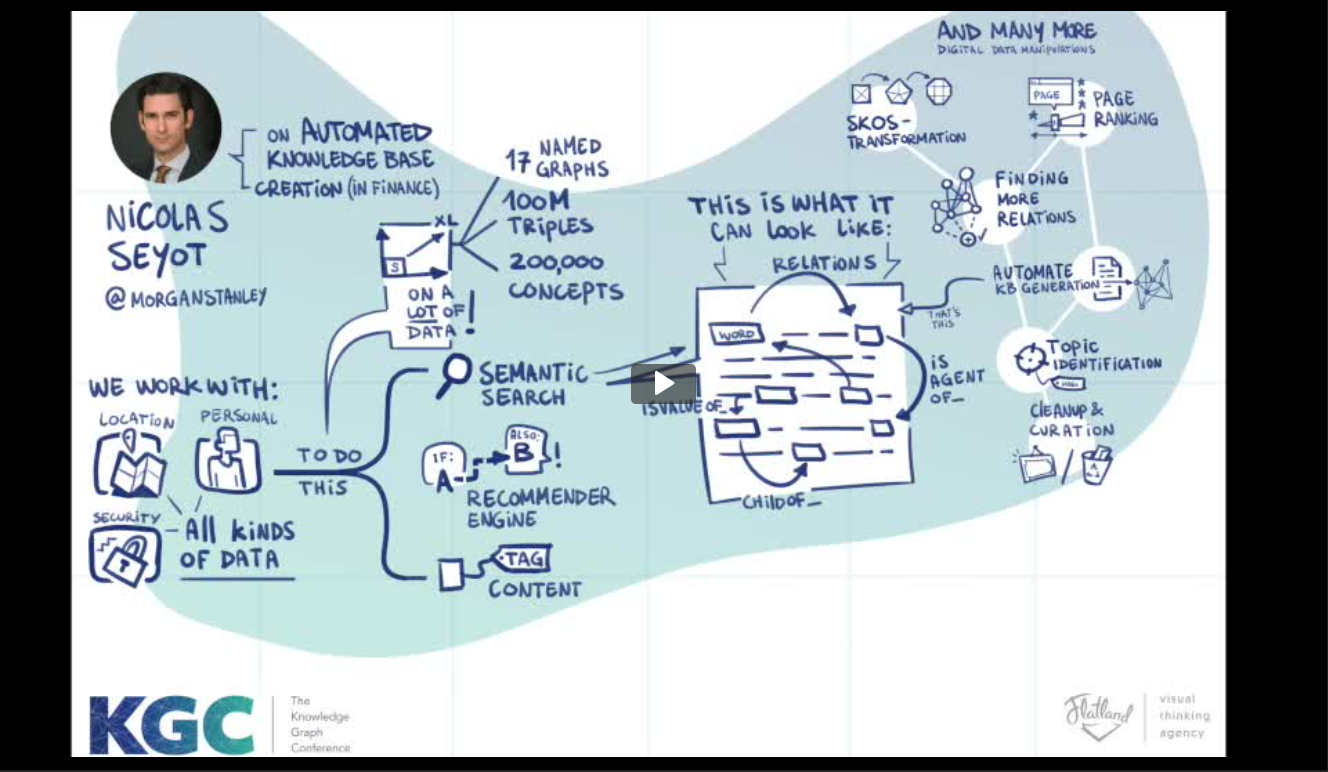 AND MANY MORE
DIGITAL DATA MANIPULATIONS
ON AUTOMATED
KNOWLEDGE BASE
CREATION (IN FINANCE)
NICOLAS
SEYOT
@MORGANSTANLEY
XL
S
ON A
LOT OF
DATA!
17 NAMED
GRAPHS
100M
TRIPLES
200,000
CONCEPTS
WE WORK WITH:
LOCATION
PERSONAL
SECURITY
All KiNDS
OF DATA
TO DO
THIS
SEMANTIC
SEARCH
IF:
A
ALSO:
B!
RECOMMENDER
ENGINE
TAG
CONTENT
THIS IS WHAT IT
CAN LOOK LIKE:
RELATIONS
WORD
IS
AGENT
OF_
ISVALUE OF_
CHILD OF_
SKOS-
TRANSFORMATION
PAGE
PAGE
RANKING
FINDING
MORE
RELATIONS
AUTOMATE
KB GENERATION
THAT'S
THIS
TOPIC
IDENTIFICATION
CLEANUP &
CURATION
KGC
The
Knowledge
Graph
Conference
Flatland
visual
thinking
agency